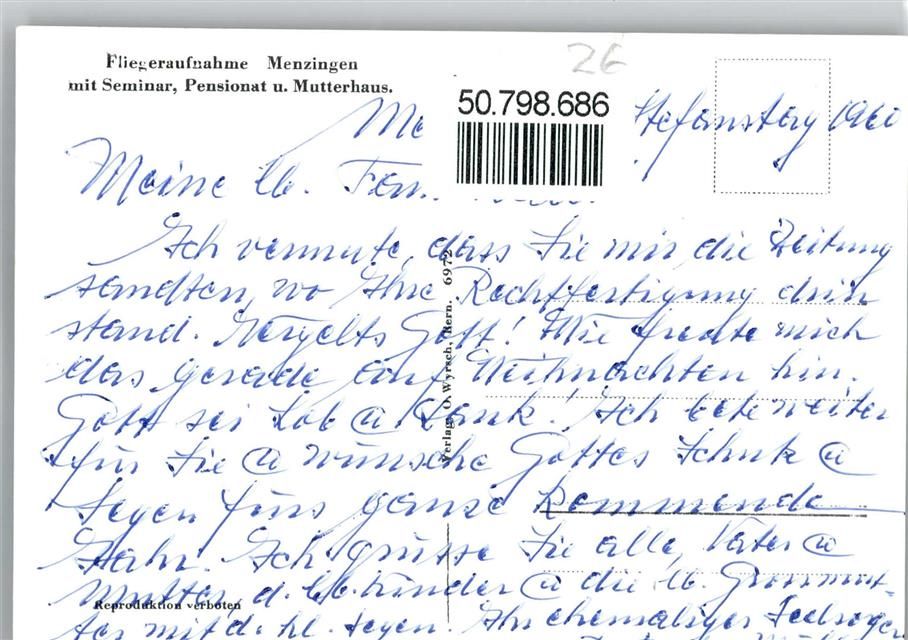 Fliegeraufnahme Menzingen
mit Seminar, Pensionat u. Mutterhaus.
26
50.798.686
Stefanstag 1960
Meine lb. Fam.
Ich vermute, dass Sie mir die Zeitung
sandten, wo Ihre Rechtfertigung drin
stand. Vergelts Gott! Wie freute mich
das gerade auf Weihnachten hin.
Gott sei Lob & Dank! Ich bete weiter
für Sie & wünsche Gottes Schutz &
Segen fürs ganze kommende
Jahr. Ich grüsse Sie alle, Vater &
Mutter, d. lb. Kinder & die lb. Grossmut-
ter mit d. hl. Segen. Ihr ehemaliger Seelsorger
Verlag O. Wyrsch, Bern. 6972
Reproduktion verboten